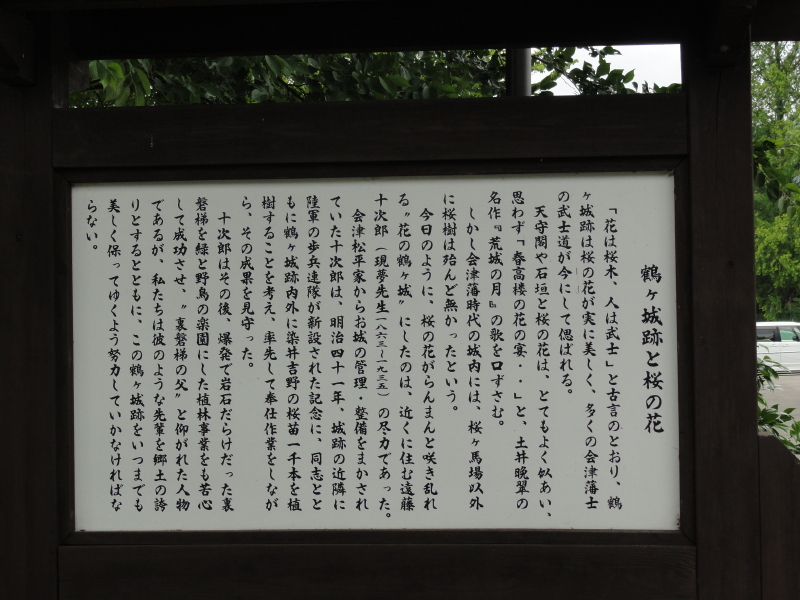 鶴ヶ城跡と桜の花
「花は桜木、人は武士」と古言のとおり、鶴
ヶ城跡は桜の花が実に美しく、多くの会津藩士
の武士道が今にして偲ばれる。
天守閣や石垣と桜の花は、とてもよく似あい、
思わず「春高楼の花の宴・・」と、土井晩翠の
名作『荒城の月』の歌を口ずさむ。
しかし会津藩時代の城内には、桜ヶ馬場以外
に桜樹は殆んど無かったという。
今日のように、桜の花がらんまんと咲き乱れ
る〝花の鶴ヶ城〟にしたのは、近くに住む遠藤
十次郎（現夢先生（一八六三～一九三五）の尽力であった。
会津松平家からお城の管理・整備をまかされ
ていた十次郎は、明治四十一年、城跡の近隣に
陸軍の歩兵連隊が新設された記念に、同志とと
もに鶴ヶ城跡内外に染井吉野の桜苗一千本を植
樹することを考え、率先して奉仕作業をしなが
ら、その成果を見守った。
十次郎はその後、爆発で岩石だらけだった裏
磐梯を緑と野鳥の楽園にした植林事業をも苦心
して成功させ、〝裏磐梯の父〟と仰がれた人物
であるが、私たちは彼のような先輩を郷土の誇
りとするとともに、この鶴ヶ城跡をいつまでも
美しく保ってゆくよう努力していかなければな
らない。